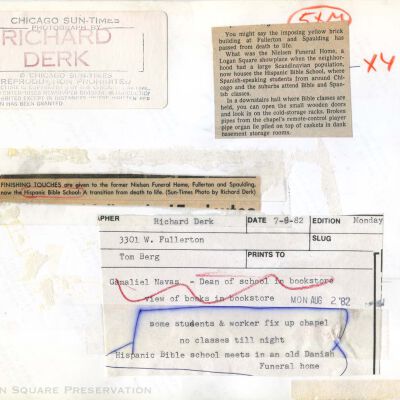 CHICAGO SUN-TIMES
PHOTOGRAPH BY
RICHARD
DERK
© CHICAGO SUN-TIMES
REPRODUCTION PROHIBITED
HAS BEEN GRANTED
5XM
You might say the imposing yellow brick
building at Fullerton and Spaulding has
passed from death to life.
What was the Nielsen Funeral Home, a
Logan Square showplace when the neighbor-
hood had a large Scandinavian population,
now houses the Hispanic Bible School, where
Spanish-speaking students from around Chi-
cago and the suburbs attend Bible and Span-
ish classes.
In a downstairs hall where Bible classes are
held, you can open the small wooden doors
and look in on the cold-storage racks. Broken
pipes from the chapel's remote-control player
pipe organ lie piled on top of caskets in dank
basement storage rooms.
X4
FINISHING TOUCHES are given to the former Nielsen Funeral Home, Fullerton and Spaulding,
now the Hispanic Bible School: A transition from death to life. (Sun-Times Photo by Richard Derk)
PHER Richard Derk DATE 7-9-82 EDITION Monday
3301 W. Fullerton SLUG
Tom Berg PRINTS TO
Gamaliel Navas - Dean of school in bookstore
view of books in bookstore MON AUG 2 '82
some students & worker fix up chapel
no classes till night
Hispanic Bible school meets in an old Danish
Funeral home
N SQUARE PRESERVATION